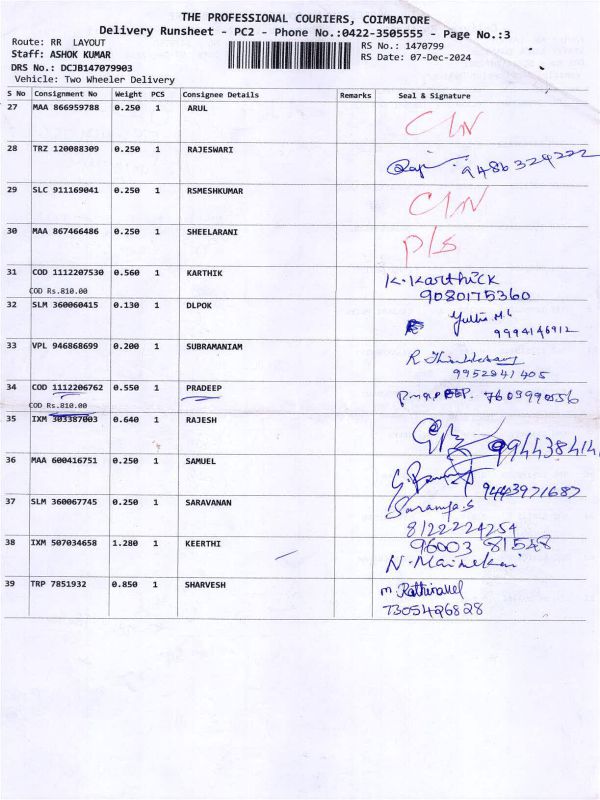 THE PROFESSIONAL COURIERS, COIMBATORE
Delivery Runsheet - PC2 - Phone No.:0422-3505555 - Page No.:3
Route: RR LAYOUT
Staff: ASHOK KUMAR
DRS No.: DCJB147079903
Vehicle: Two Wheeler Delivery
RS No.: 1470799
RS Date: 07-Dec-2024
S No Consignment No Weight PCS Consignee Details Remarks Seal & Signature
27 MAA 866959788 0.250 1 ARUL
28 TRZ 120088309 0.250 1 RAJESWARI 9486324222
29 SLC 911169041 0.250 1 RSMESHKUMAR
30 MAA 867466486 0.250 1 SHEELARANI P/S
31 COD 1112207530 0.560 1 KARTHIK K.Karthick
COD Rs.810.00 9080175360
32 SLM 360060415 0.130 1 DLPOK
9994146912
33 VPL 946868699 0.200 1 SUBRAMANIAM
9952941405
34 COD 1112206762 0.550 1 PRADEEP
COD Rs.810.00
35 IXM 303387003 0.640 1 RAJESH
36 MAA 600416751 0.250 1 SAMUEL
9443971687
37 SLM 360067745 0.250 1 SARAVANAN
8122224254
38 IXM 507034658 1.280 1 KEERTHI 96003 81548
39 TRP 7851932 0.850 1 SHARVESH
7305426828